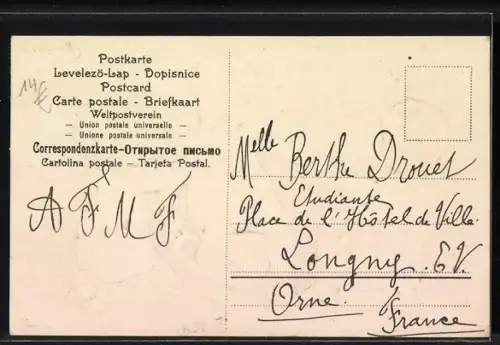 Postkarte
Levelezö-Lap - Dopisnice
Postcard
Carte postale - Briefkaart
Weltpostverein
— Union postale universelle —
— Unione postale universale —
Correspondenzkarte—Открытое письмо
Cartolina postale — Tarjeta Postal.
14
A F M F.
Melle Berthe Drouet
Etudiante
Place de l'Hôtel de Ville
Longny. E.V.
Orne.
France